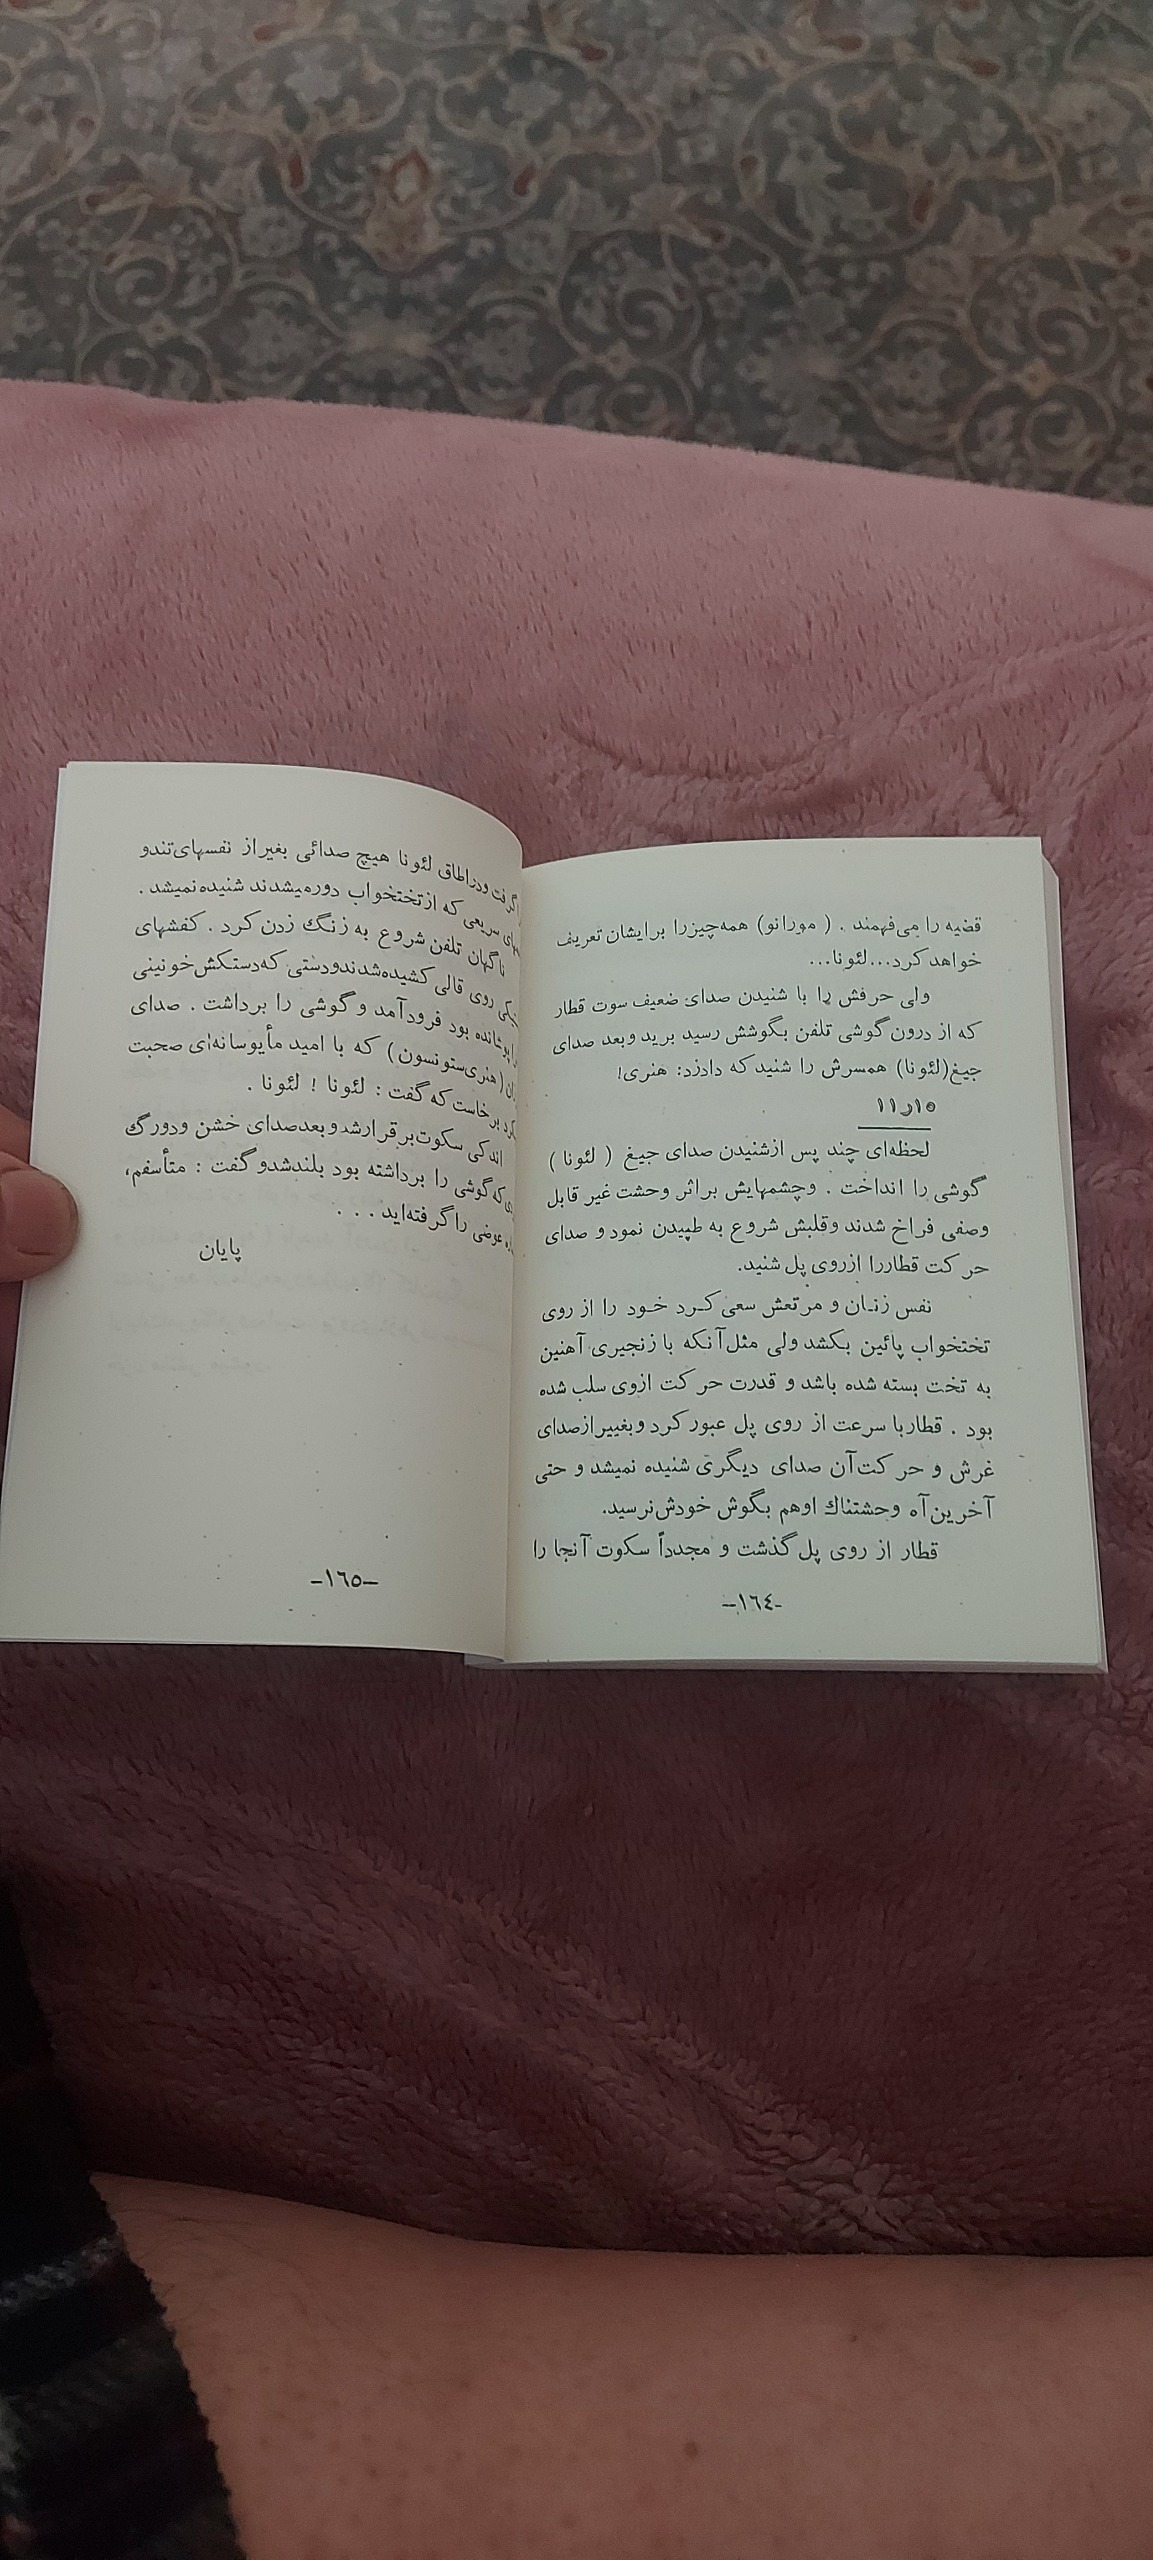 قضیه را می‌فهمند . ( مورانو) همه‌چیزرا برایشان تعریف
خواهد کرد...لئونا...
ولی حرفش را با شنیدن صدای ضعیف سوت قطار
که از درون گوشی تلفن بگوشش رسید برید وبعد صدای
جیغ(لئونا) همسرش را شنید که دادزد: هنری!
۱۱ر۱۵
لحظه‌ای چند پس ازشنیدن صدای جیغ ( لئونا )
گوشی را انداخت . وچشمهایش براثر وحشت غیر قابل
وصفی فراخ شدند وقلبش شروع به طپیدن نمود و صدای
حرکت قطاررا ازروی پل شنید.
نفس زنان و مرتعش سعی کرد خود را از روی
تختخواب پائین بکشد ولی مثل‌آنکه با زنجیری آهنین
به تخت بسته شده باشد و قدرت حرکت ازوی سلب شده
بود . قطاربا سرعت از روی پل عبور کرد وبغییرازصدای
غرش و حرکت‌آن صدای دیگری شنیده نمیشد و حتی
آخرین‌آه وحشتناك اوهم بگوش خودش‌نرسید.
قطار از روی پل گذشت و مجدداً سکوت آنجا را
-۱٦٤-
گرفت ودراطاق لئونا هیچ صدائی بغیراز نفسهای‌تندو
سریعی که ازتختخواب دورمیشدند شنیده‌نمیشد .
ناگهان تلفن شروع به زنگ زدن کرد . کفشهای
روی قالی کشیده‌شدندودستی که‌دستکش‌خونینی
پوشانده بود فرودآمد و گوشی را برداشت . صدای
(هنری‌ستونسون) که با امید مأیوسانه‌ای صحبت
برخاست که گفت : لئونا ! لئونا .
اندکی سکوت‌برقرارشدوبعدصدای خشن ودورگ
که‌گوشی را برداشته بود بلندشدو گفت : متأسفم،
عوضی را گرفته‌اید . . .
پایان
-۱٦۵-